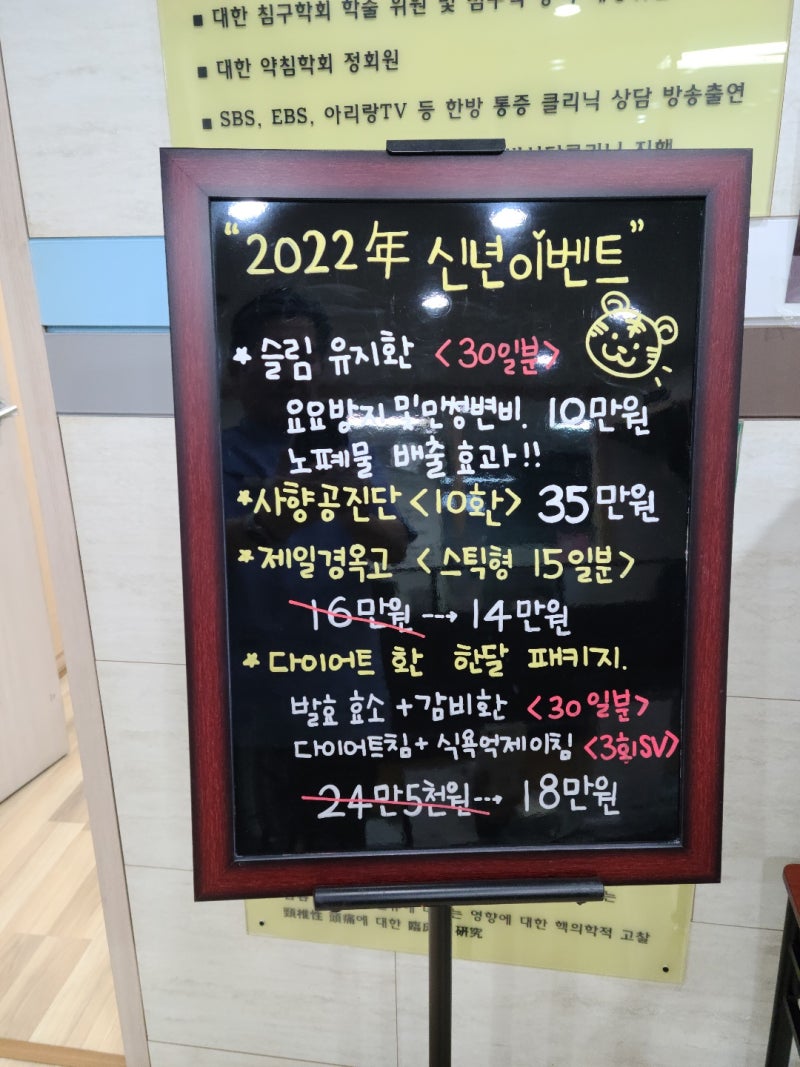 ■ 대한 침구학회 학술 위원 및
■ 대한 약침학회 정회원
■ SBS, EBS, 아리랑TV 등 한방 통증 클리닉 상담 방송출연
진행
“2022年 신년이벤트”
* 슬림 유지환 <30일분>
요요방지 및 만성변비. 10만원
노폐물 배출효과!!
*사향공진단 <10환> 35만원
*제일경옥고 <스틱형 15일분>
16만원 → 14만원
* 다이어트 환 한달 패키지.
발효 효소 + 감비환 <30일분>
다이어트침 + 식욕억제이침 <3회SV>
24만5천원 → 18만원
영향에 대한 핵의학적 고찰
頸椎性 頭痛에 대한 臨床 研究